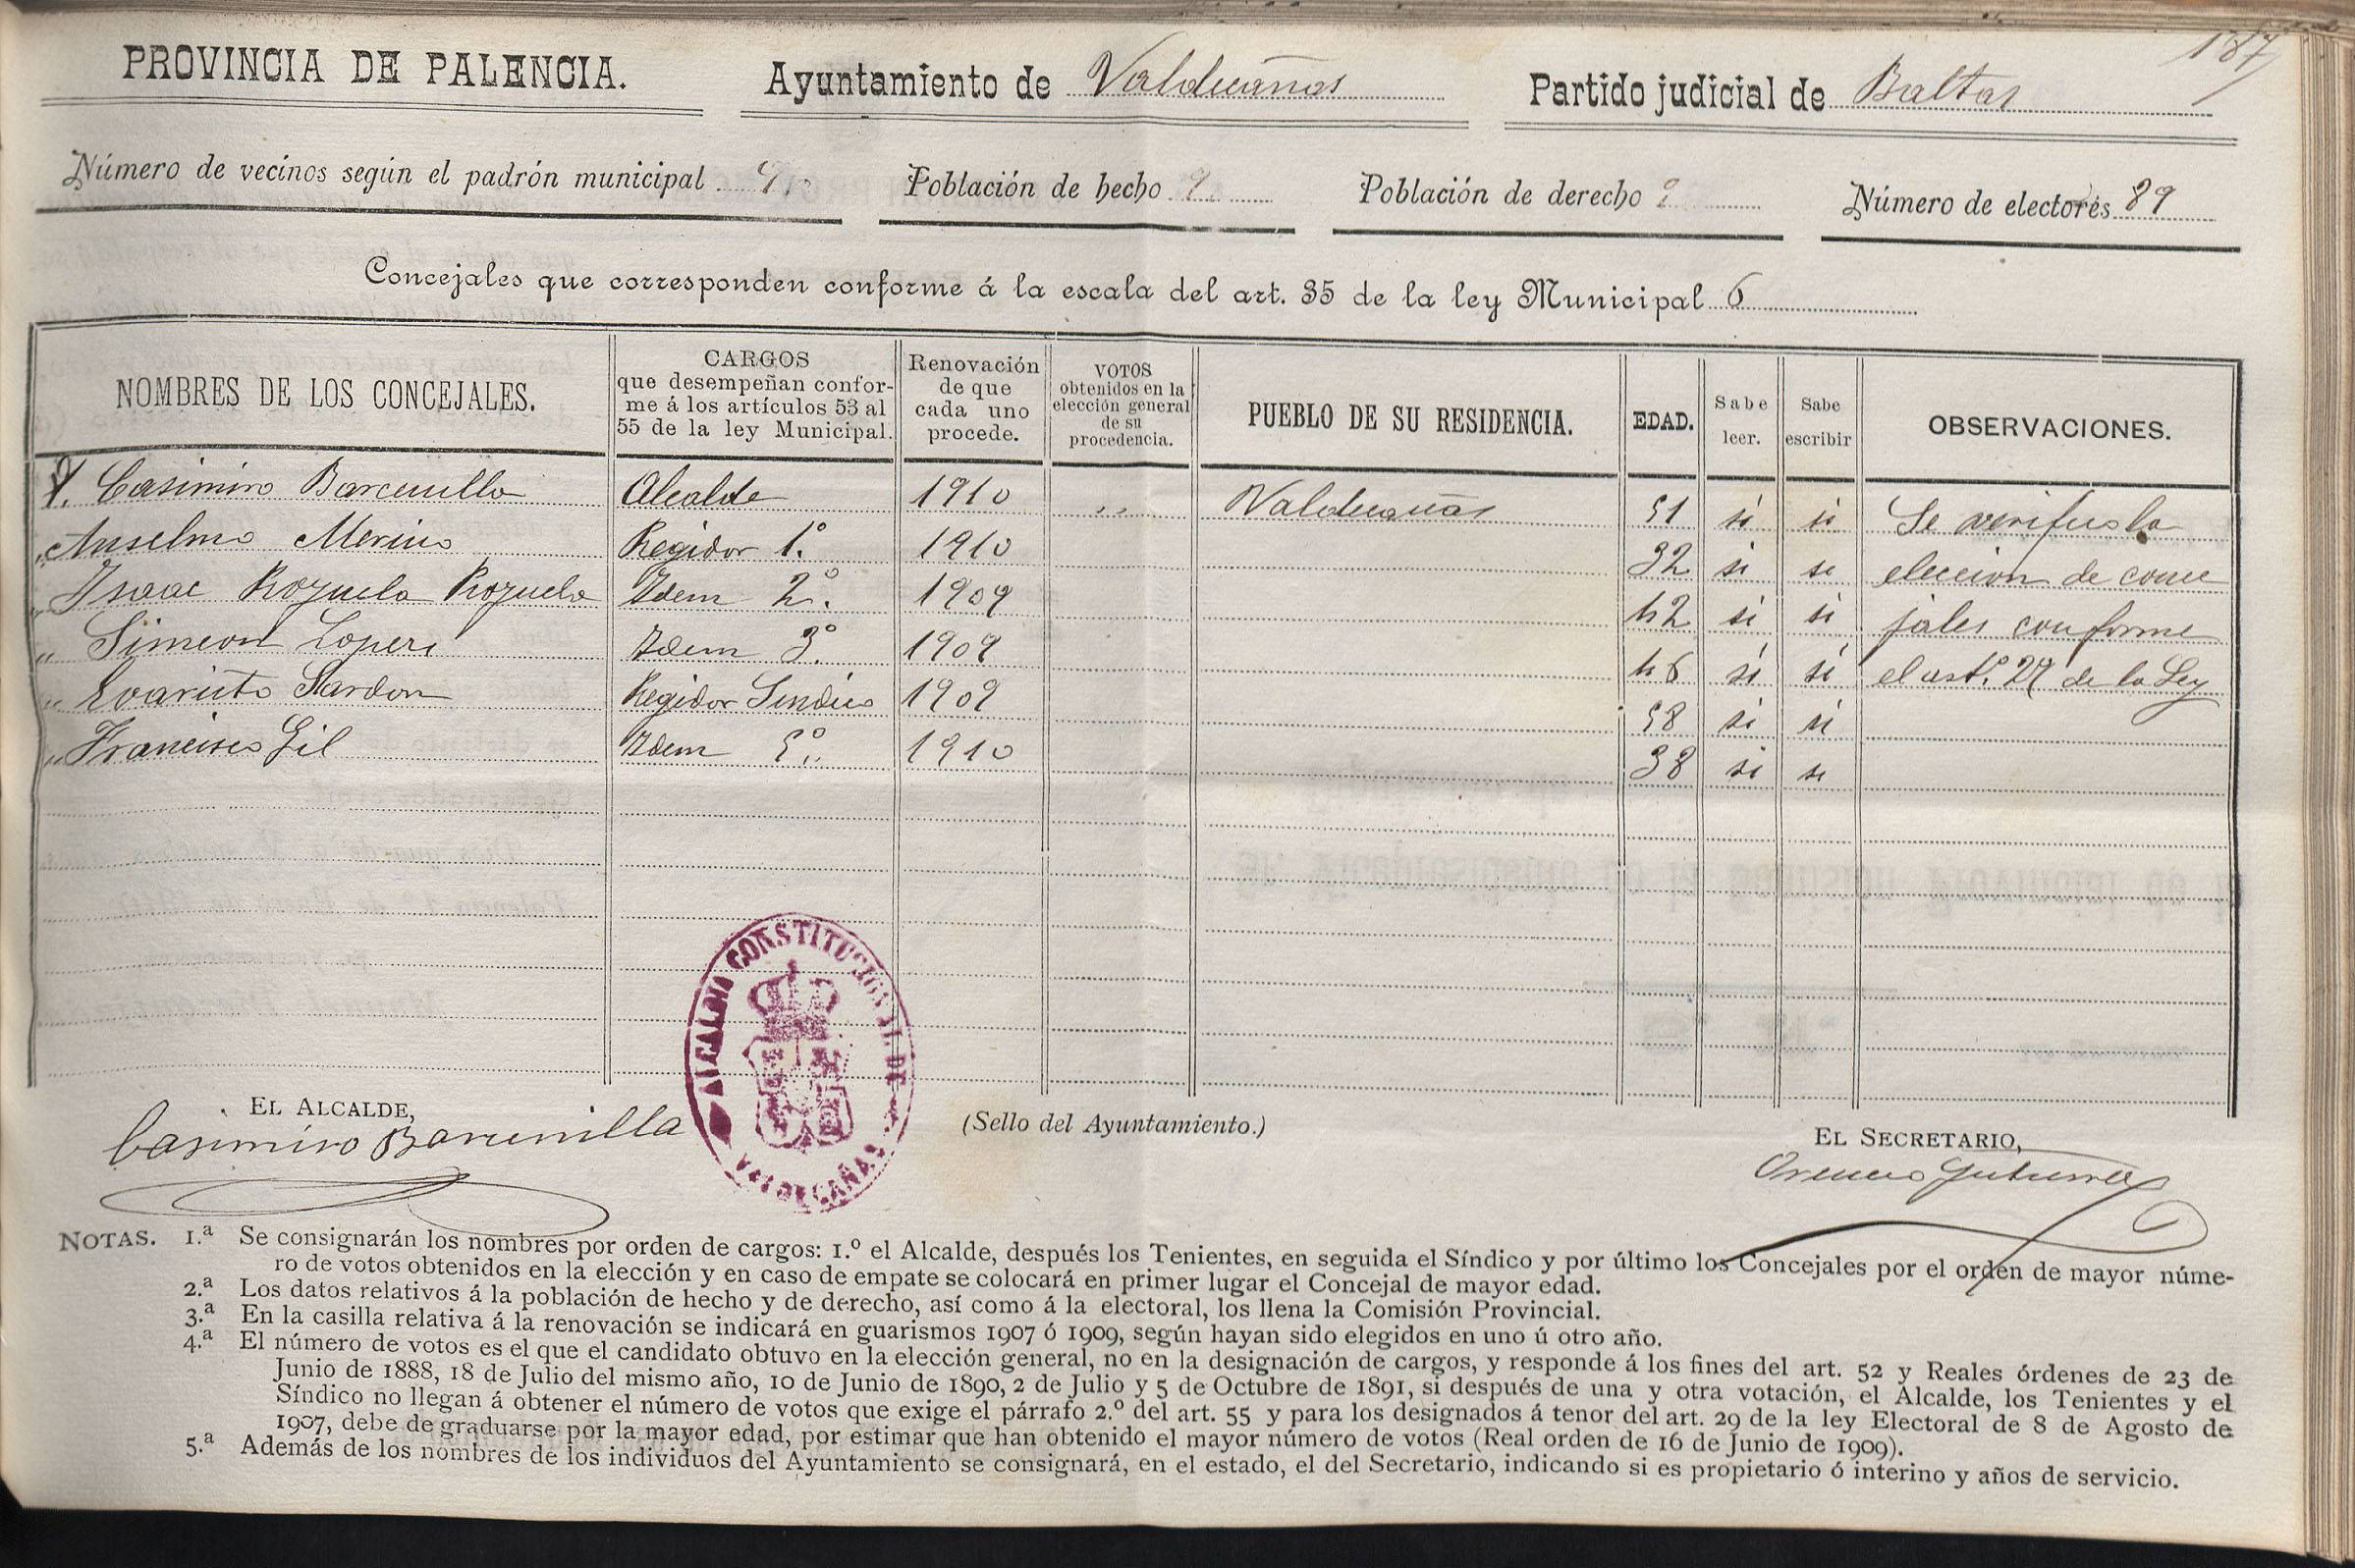 187
PROVINCIA DE PALENCIA. Ayuntamiento de Valdecañas Partido judicial de Baltas
Número de vecinos según el padrón municipal Población de hecho Población de derecho Número de electores 89
Concejales que corresponden conforme á la escala del art. 35 de la ley Municipal 6
NOMBRES DE LOS CONCEJALES.
CARGOS
que desempeñan confor-
me á los artículos 53 al
55 de la ley Municipal.
Renovación
de que
cada uno
procede.
VOTOS
obtenidos en la
elección general
de su
procedencia.
PUEBLO DE SU RESIDENCIA.
EDAD.
Sabe
leer.
Sabe
escribir
OBSERVACIONES.
Casimiro Barcenilla Alcalde 1910 ,, Valdecañas 51 si si Se verifico la
„ Anselmo Merino Regidor 1.º 1910 32 si si eleccion de conce
„ Isaac Rozuela Rozuela Idem 2º. 1909 42 si si jales conforme
„ Simeon Lopez Idem 3.º 1909 46 si si el art.º 29 de la Ley
„ Evaristo Sardon Regidor Sindico 1909 58 si si
„ Francisco Gil Idem 5º 1910 38 si si
ALCALDIA CONSTITUCIONAL DE
VALDECAÑAS
EL ALCALDE,
Casimiro Barcenilla
(Sello del Ayuntamiento.)
EL SECRETARIO,
Orencio Gutierrez
NOTAS. 1.ª Se consignarán los nombres por orden de cargos: 1.º el Alcalde, después los Tenientes, en seguida el Síndico y por último los Concejales por el orden de mayor núme-
ro de votos obtenidos en la elección y en caso de empate se colocará en primer lugar el Concejal de mayor edad.
2.ª Los datos relativos á la población de hecho y de derecho, así como á la electoral, los llena la Comisión Provincial.
3.ª En la casilla relativa á la renovación se indicará en guarismos 1907 ó 1909, según hayan sido elegidos en uno ú otro año.
4.ª El número de votos es el que el candidato obtuvo en la elección general, no en la designación de cargos, y responde á los fines del art. 52 y Reales órdenes de 23 de
Junio de 1888, 18 de Julio del mismo año, 10 de Junio de 1890, 2 de Julio y 5 de Octubre de 1891, si después de una y otra votación, el Alcalde, los Tenientes y el
Síndico no llegan á obtener el número de votos que exige el párrafo 2.º del art. 55 y para los designados á tenor del art. 29 de la ley Electoral de 8 de Agosto de
1907, debe de graduarse por la mayor edad, por estimar que han obtenido el mayor número de votos (Real orden de 16 de Junio de 1909).
5.ª Además de los nombres de los individuos del Ayuntamiento se consignará, en el estado, el del Secretario, indicando si es propietario ó interino y años de servicio.